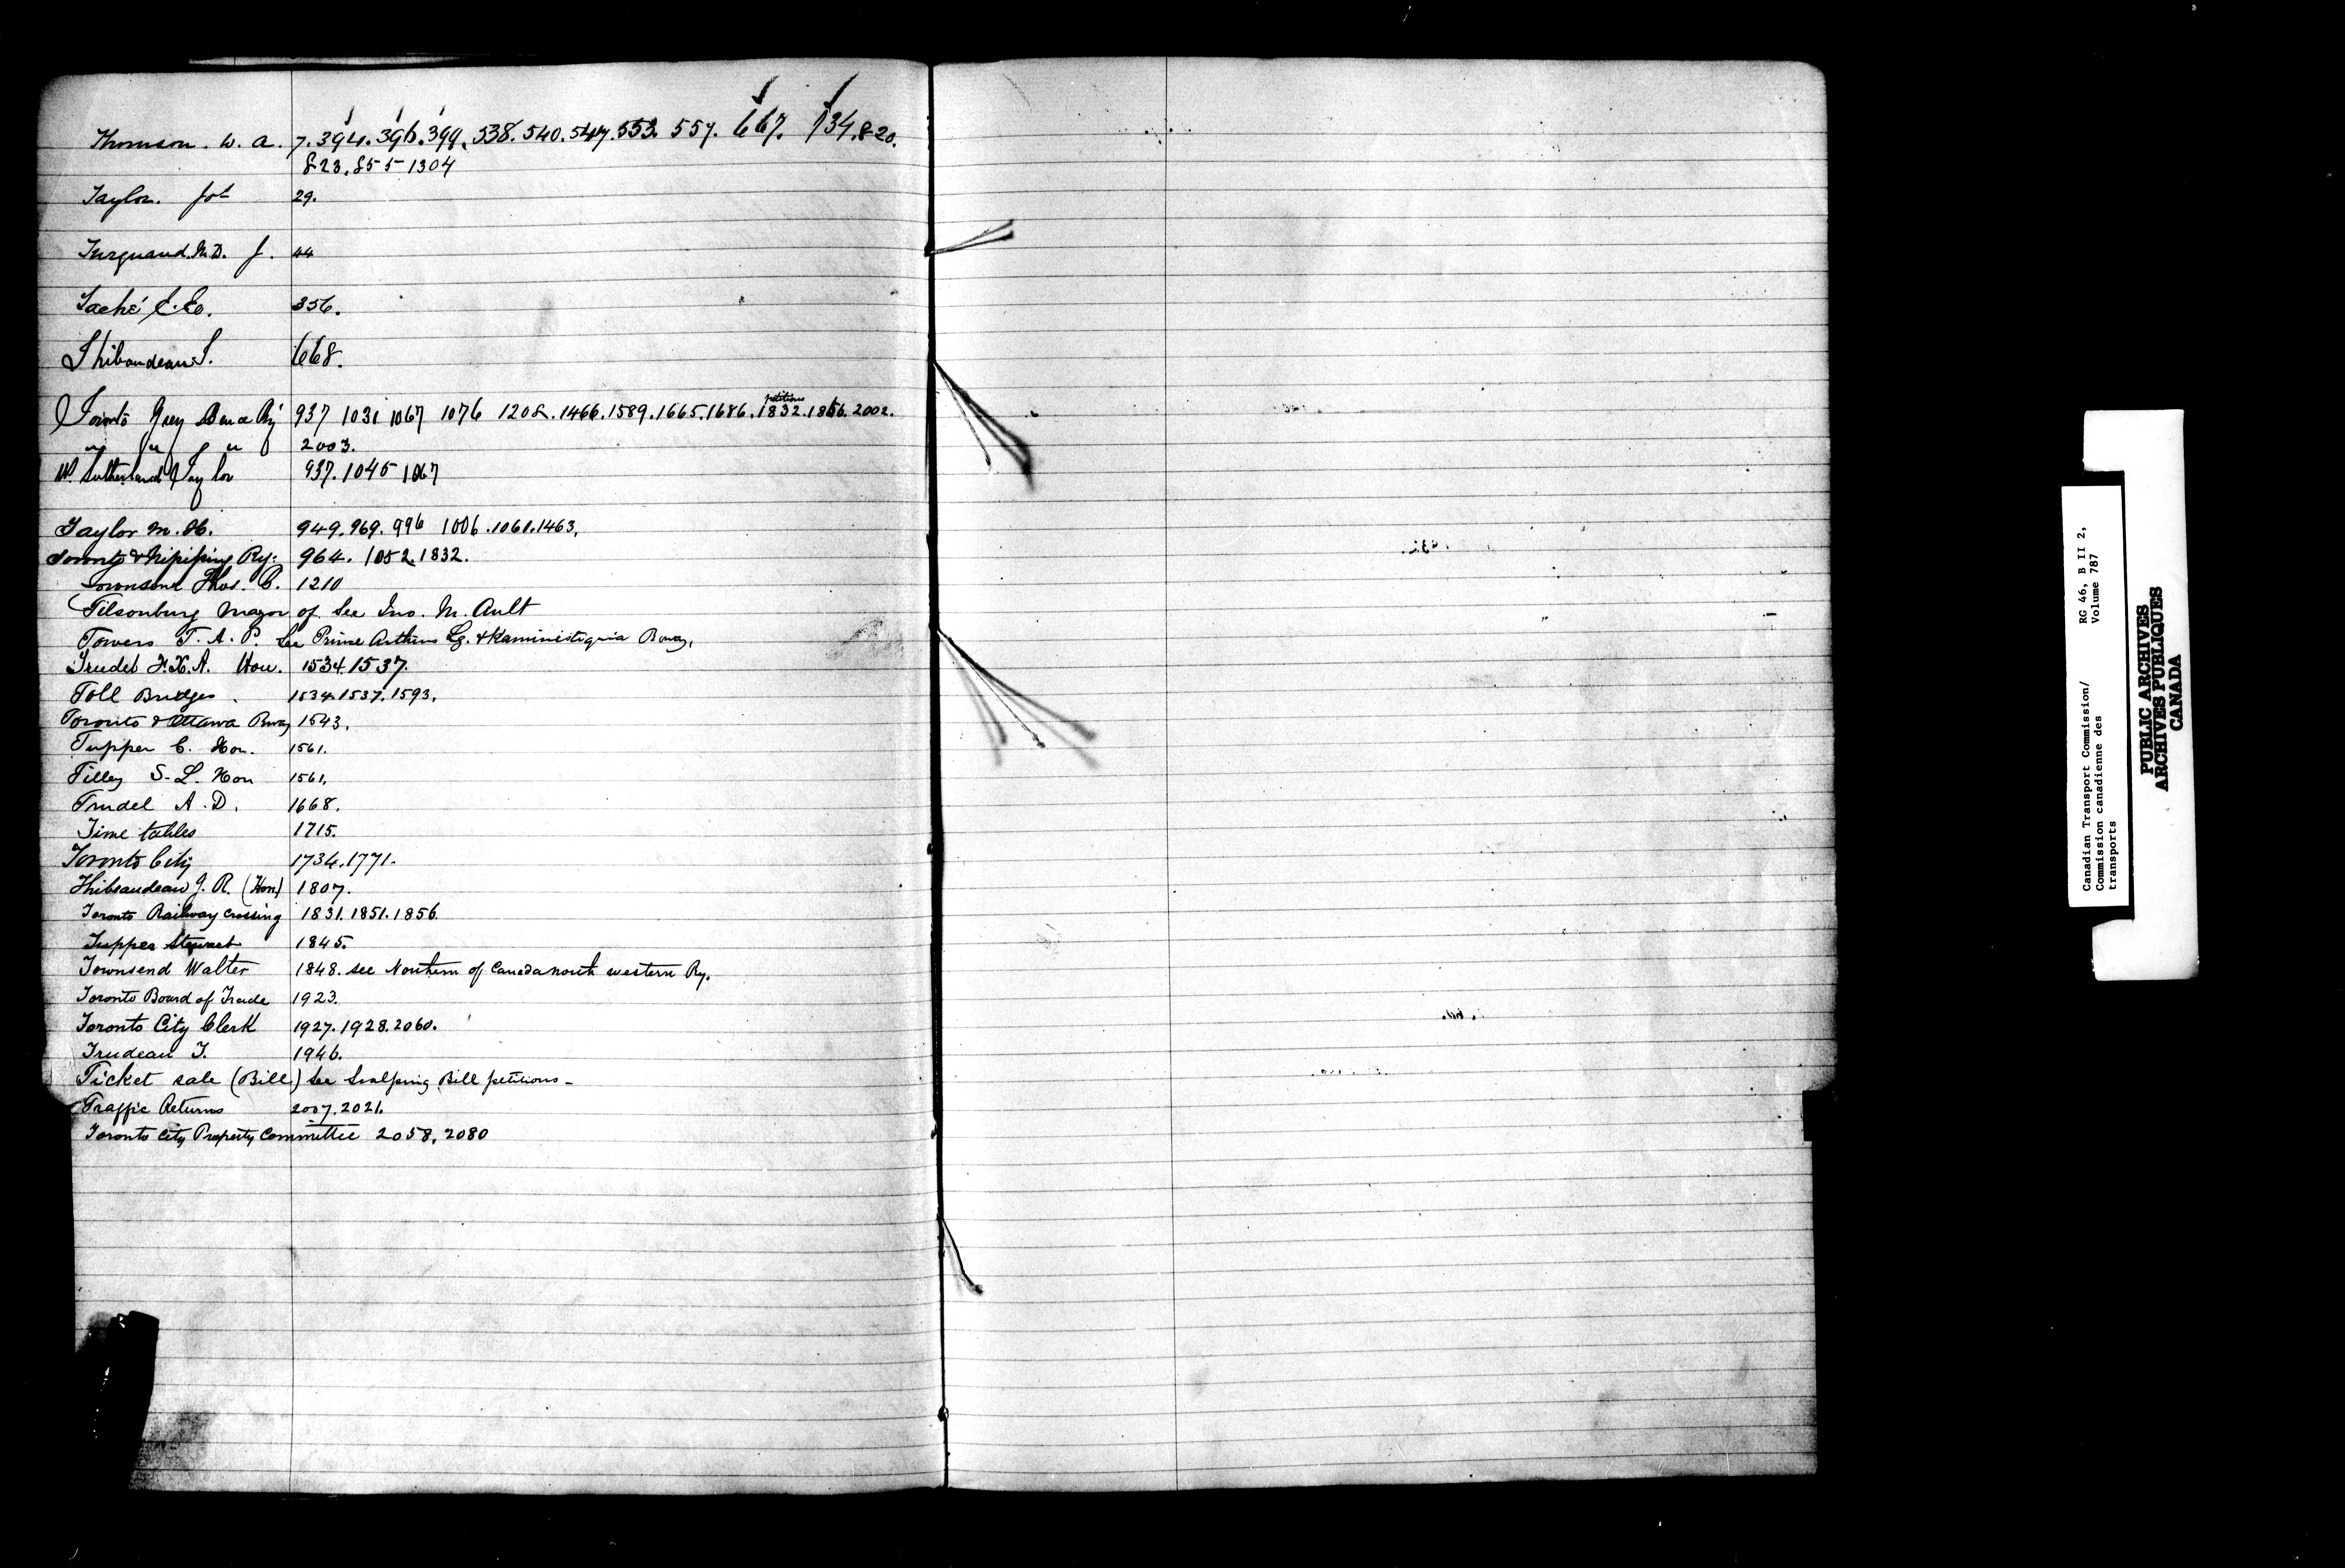 Thomson. W. A. 7. 394. 396. 399. 538. 540. 547. 553. 557. 667. 734. 820.
823. 855 - 1304
Taylor. Jos 29.
Turquand. M.D. J. 44
Taché E. Eo. 356.
Thibaudeau J. 668.
Toronto Grey Bruce Ry 937 1031 1067 1076 1208. 1466. 1589. 1665. 1686. petitions 1832. 1856. 2002.
" " " " 2003.
W. Sutherland Taylor 937. 1045 1067
Taylor M. H. 949. 969. 996 1006. 1061. 1463.
Toronto & Nipissing Ry: 964. 1052. 1832.
Townsend Thos. C. 1210
Tilsonburg Mayor of See Jno. M. Ault
Towers T. A. P. See Prince Arthurs Lg. & Kaministiquia Rway.
Trudel F. X. A. Hon. 1534. 1537.
Toll Bridges. 1534. 1537. 1593.
Toronto & Ottawa Rway 1543.
Tupper C. Hon. 1561.
Tilley S. L. Hon 1561.
Trudel A. D. 1668.
Time tables 1715.
Toronto City 1734. 1771.
Thibaudeau J. R. (Hon) 1807.
Toronto Railway crossing 1831. 1851. 1856.
Tupper Stewart 1845.
Townsend Walter 1848. see Northern of Canada north western Ry.
Toronto Board of Trade 1923.
Toronto City Clerk 1927. 1928. 2060.
Trudeau T. 1946.
Ticket sale (Bill) See Scalping Bill petitions -
Traffic Returns 2007. 2021.
Toronto City Property Committee 2058, 2080
Canadian Transport Commission/ RG 46, B II 2,
Commission canadienne des Volume 787
transports
PUBLIC ARCHIVES
ARCHIVES PUBLIQUES
CANADA